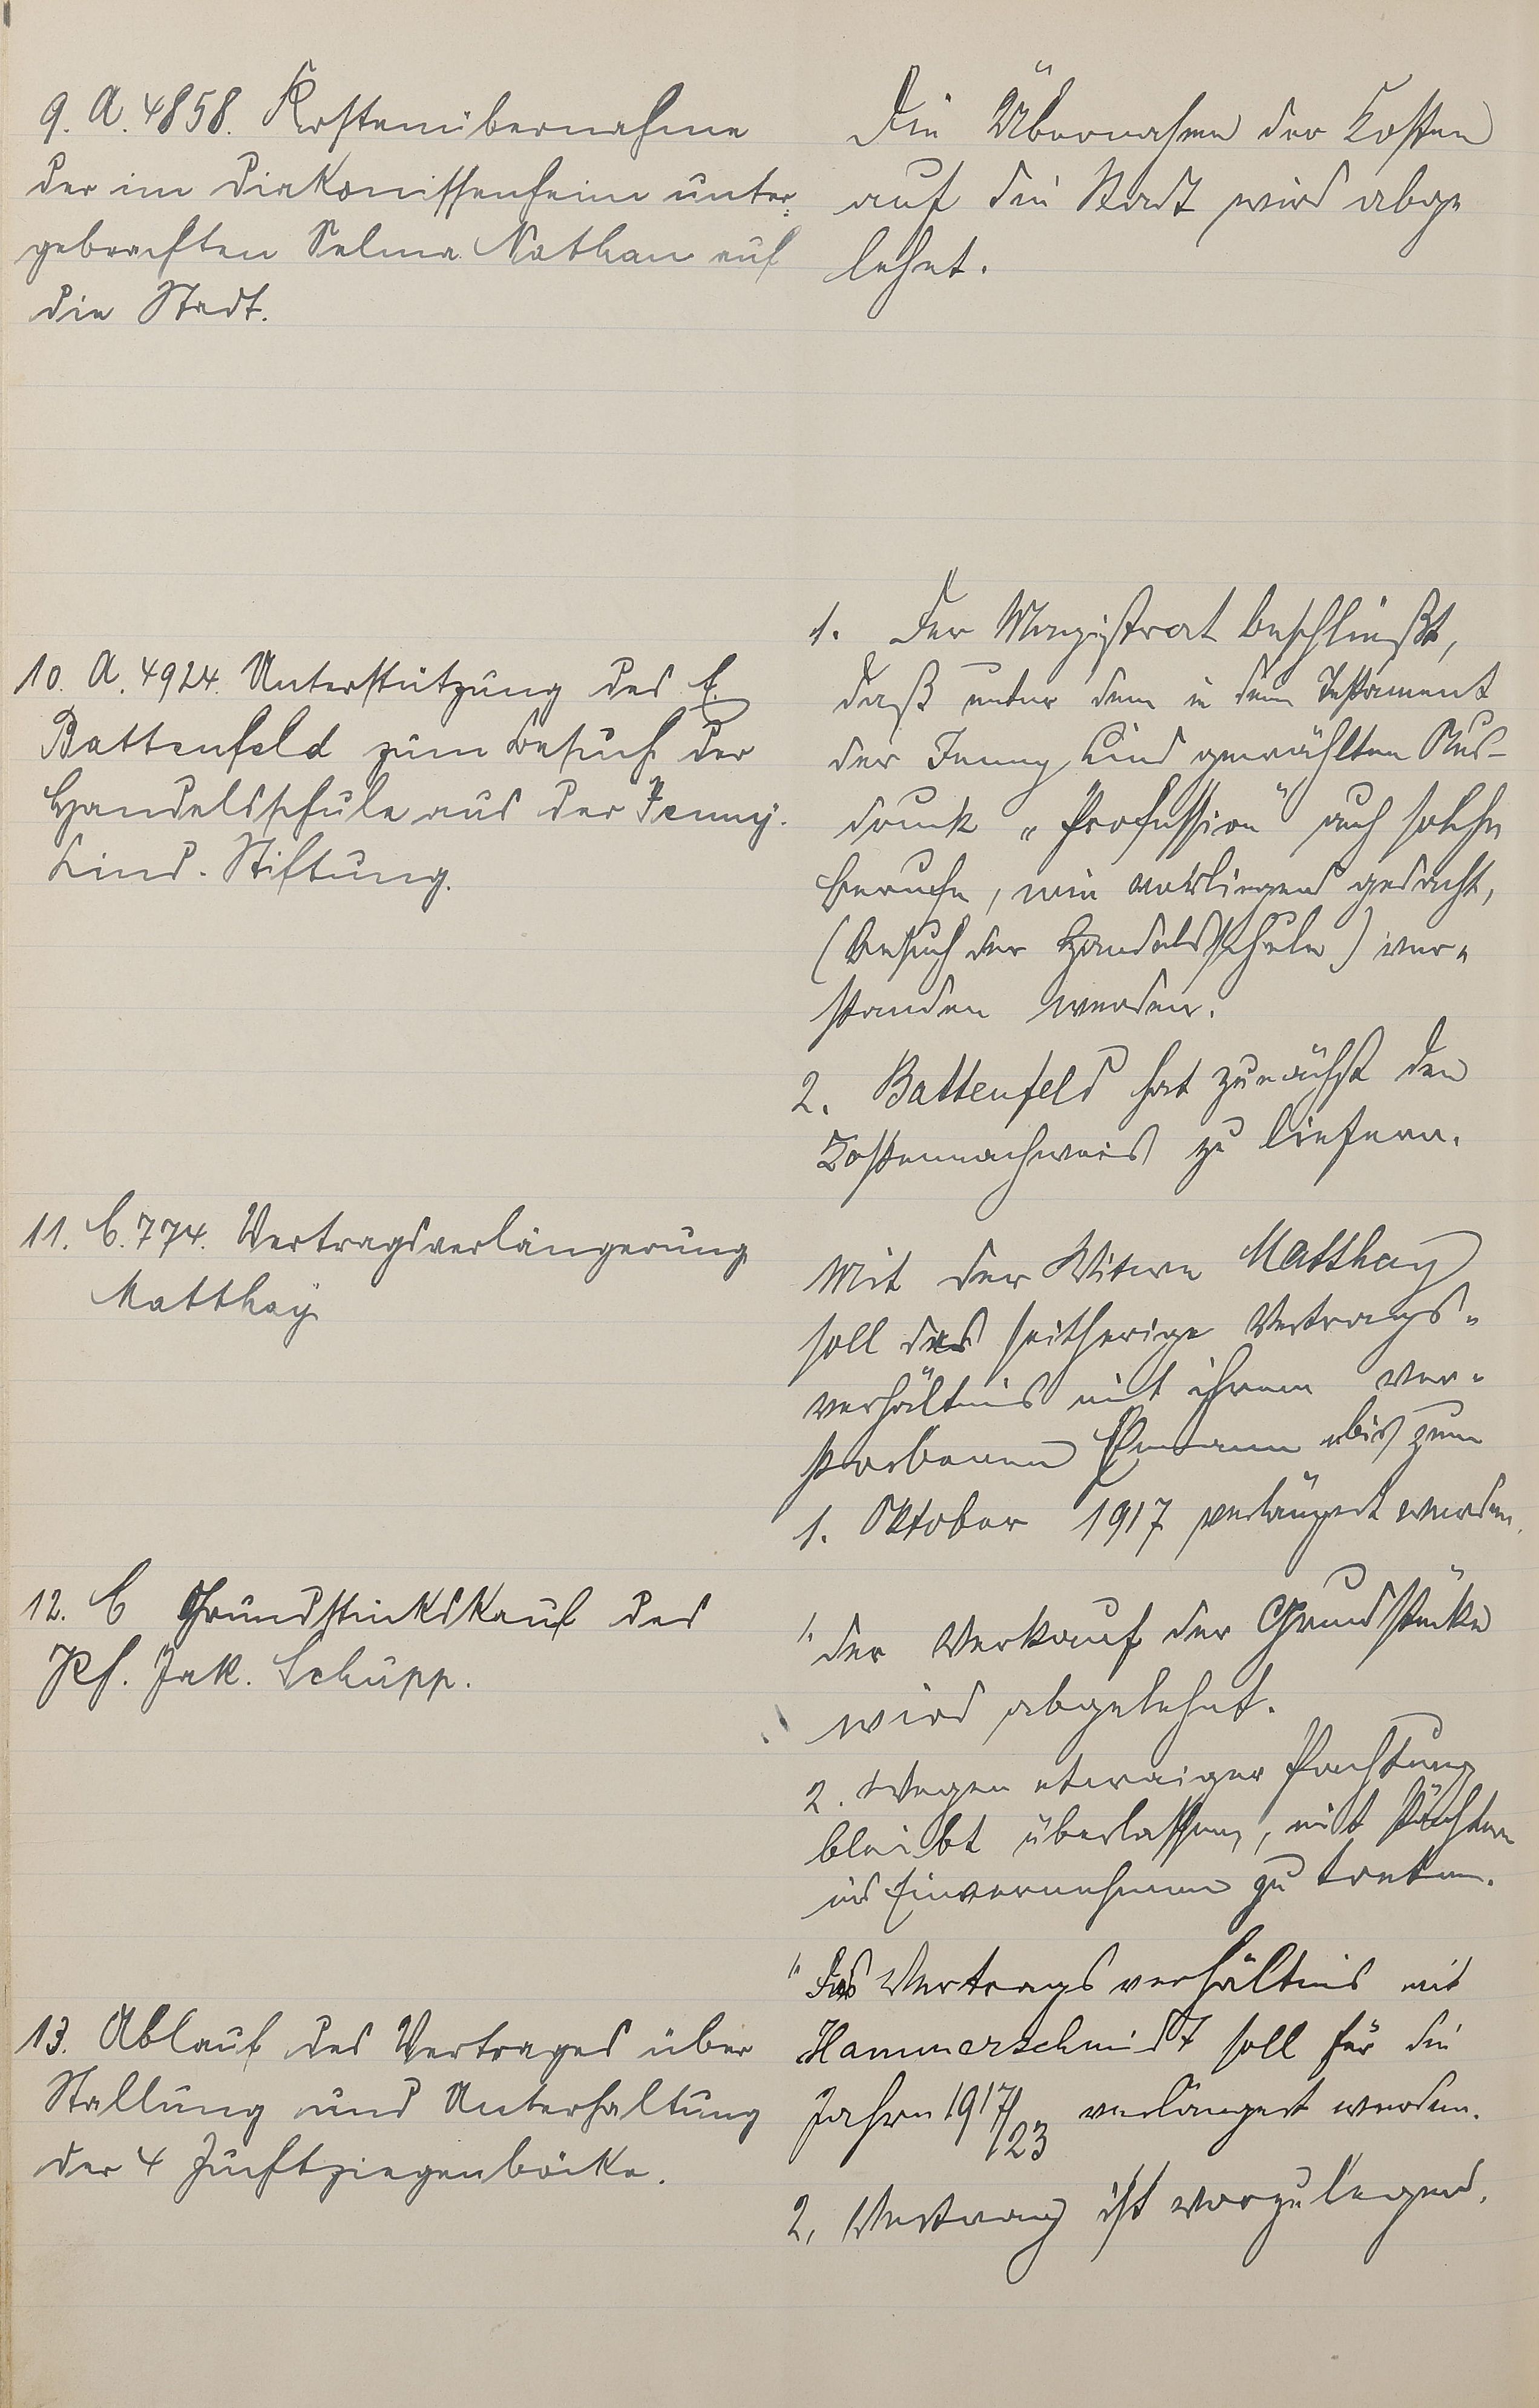 9. A. 4858. Kostenübernahme
der im Diakonissenheim unter-
gebrachten Selma Nathan auf
die Stadt.
Die Übernahme der Kosten
auf die Stadt wird abge
lehnt.
10. A. 4924. Unterstützung des E.
Battenfeld zum Besuch der
Handelsschule aus der Jenny-
Lind-Stiftung.
1. Der Magistrat beschließt,
daß unter dem in dem Testament
der Jenny Lind gewählten Aus-
druck „Profession" auch solche
Berufe, wie vorliegend gedacht,
(Besuch der Handelsschule) ver-
standen werden.
2. Battenfeld hat zunächst den
Kostennachweis zu liefern.
11. C. 774. Vertragsverlängerung
Matthay
Mit der Witwe Matthay
soll das seitherige Vertrags-
verhältnis mit ihrem ver-
storbenen Ehemann bis zum
1. Oktober 1917 verlängert werden.
12. C Grundstückskauf des
Kf. Jak. Schupp.
1. der Verkauf der Grundstücke
wird abgelehnt.
2. Wegen etwaiger Pachtung
bleibt überlassen, mit Pächtern
ins Einvernehmen zu treten.
13. Ablauf des Vertrages über
Stallung und Unterhaltung
der 4 Zuchtziegenböcke.
1. Das Vertragsverhältnis mit
Hammerschmidt soll für die
Jahre 1917/
/23 verlängert werden.
2. Vertrag ist vorzulegend.